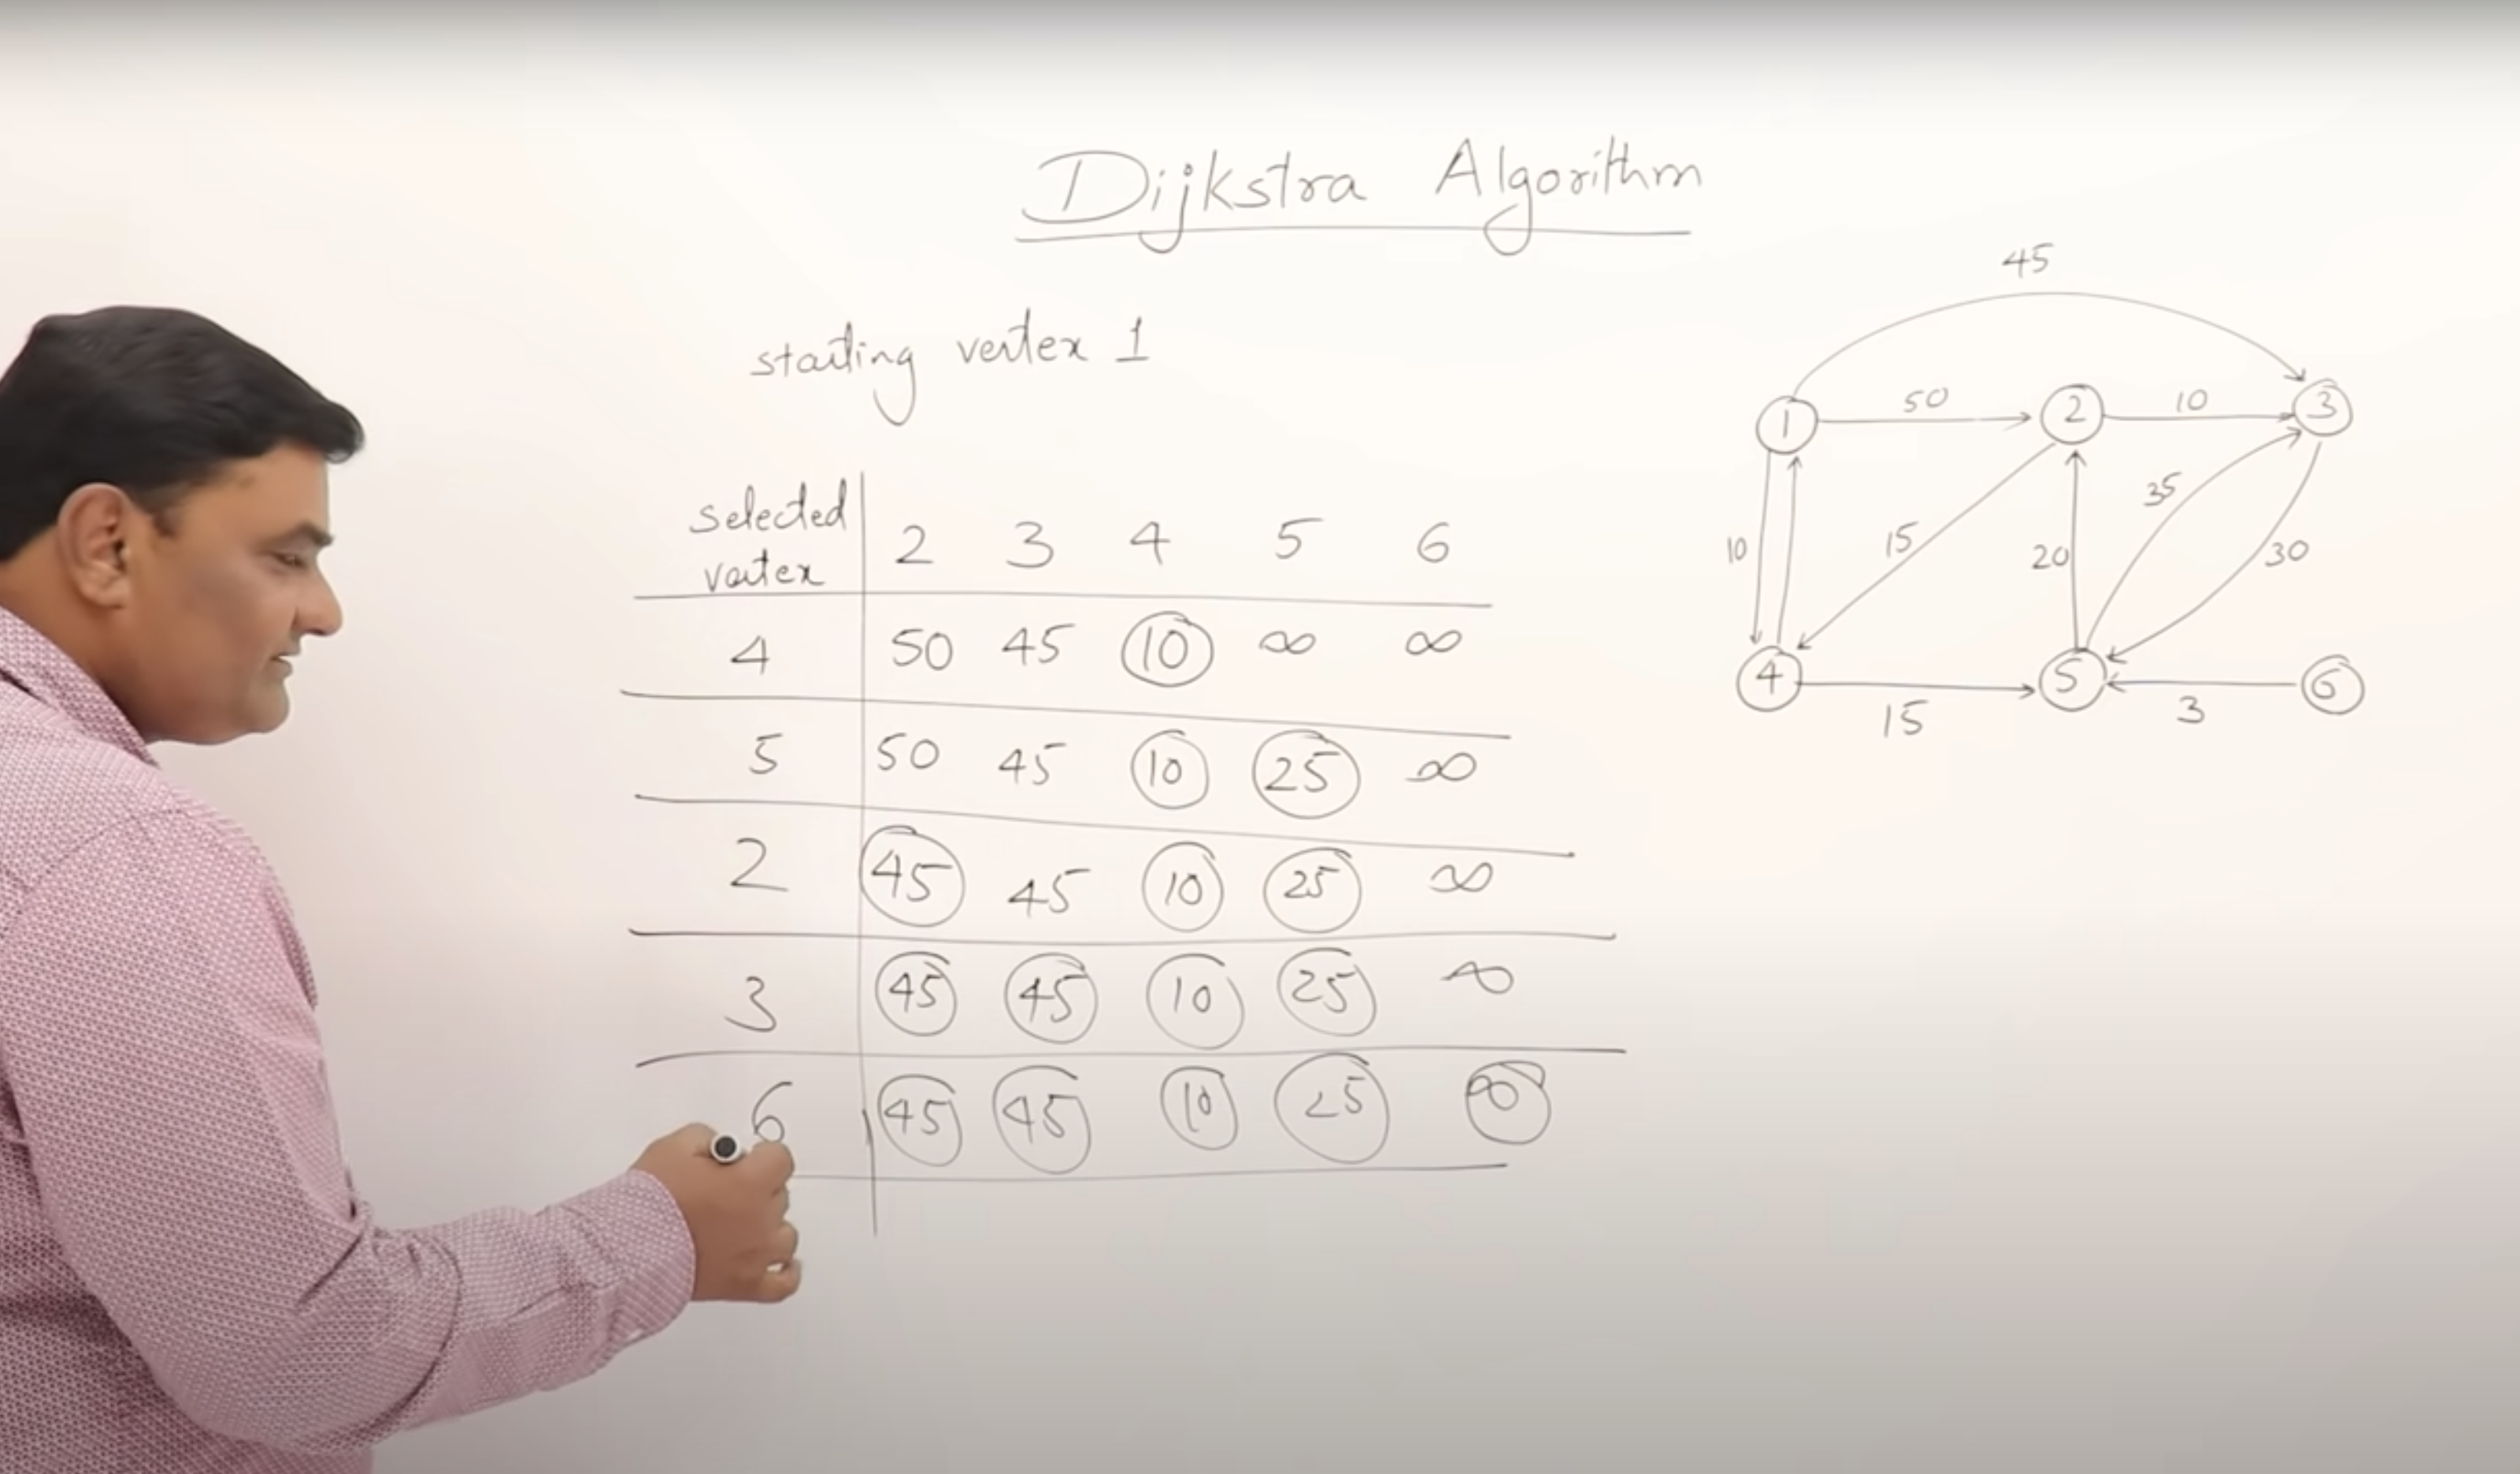 Dijkstra Algorithm
starting vertex 1
selected
vertex
2 3 4 5 6
4 50 45 10 ∞ ∞
5 50 45 10 25 ∞
2 45 45 10 25 ∞
3 45 45 10 25 ∞
6 45 45 10 25 ∞
45
1 50 2 10 3
10 15 20 35 30
4 15 5 3 6